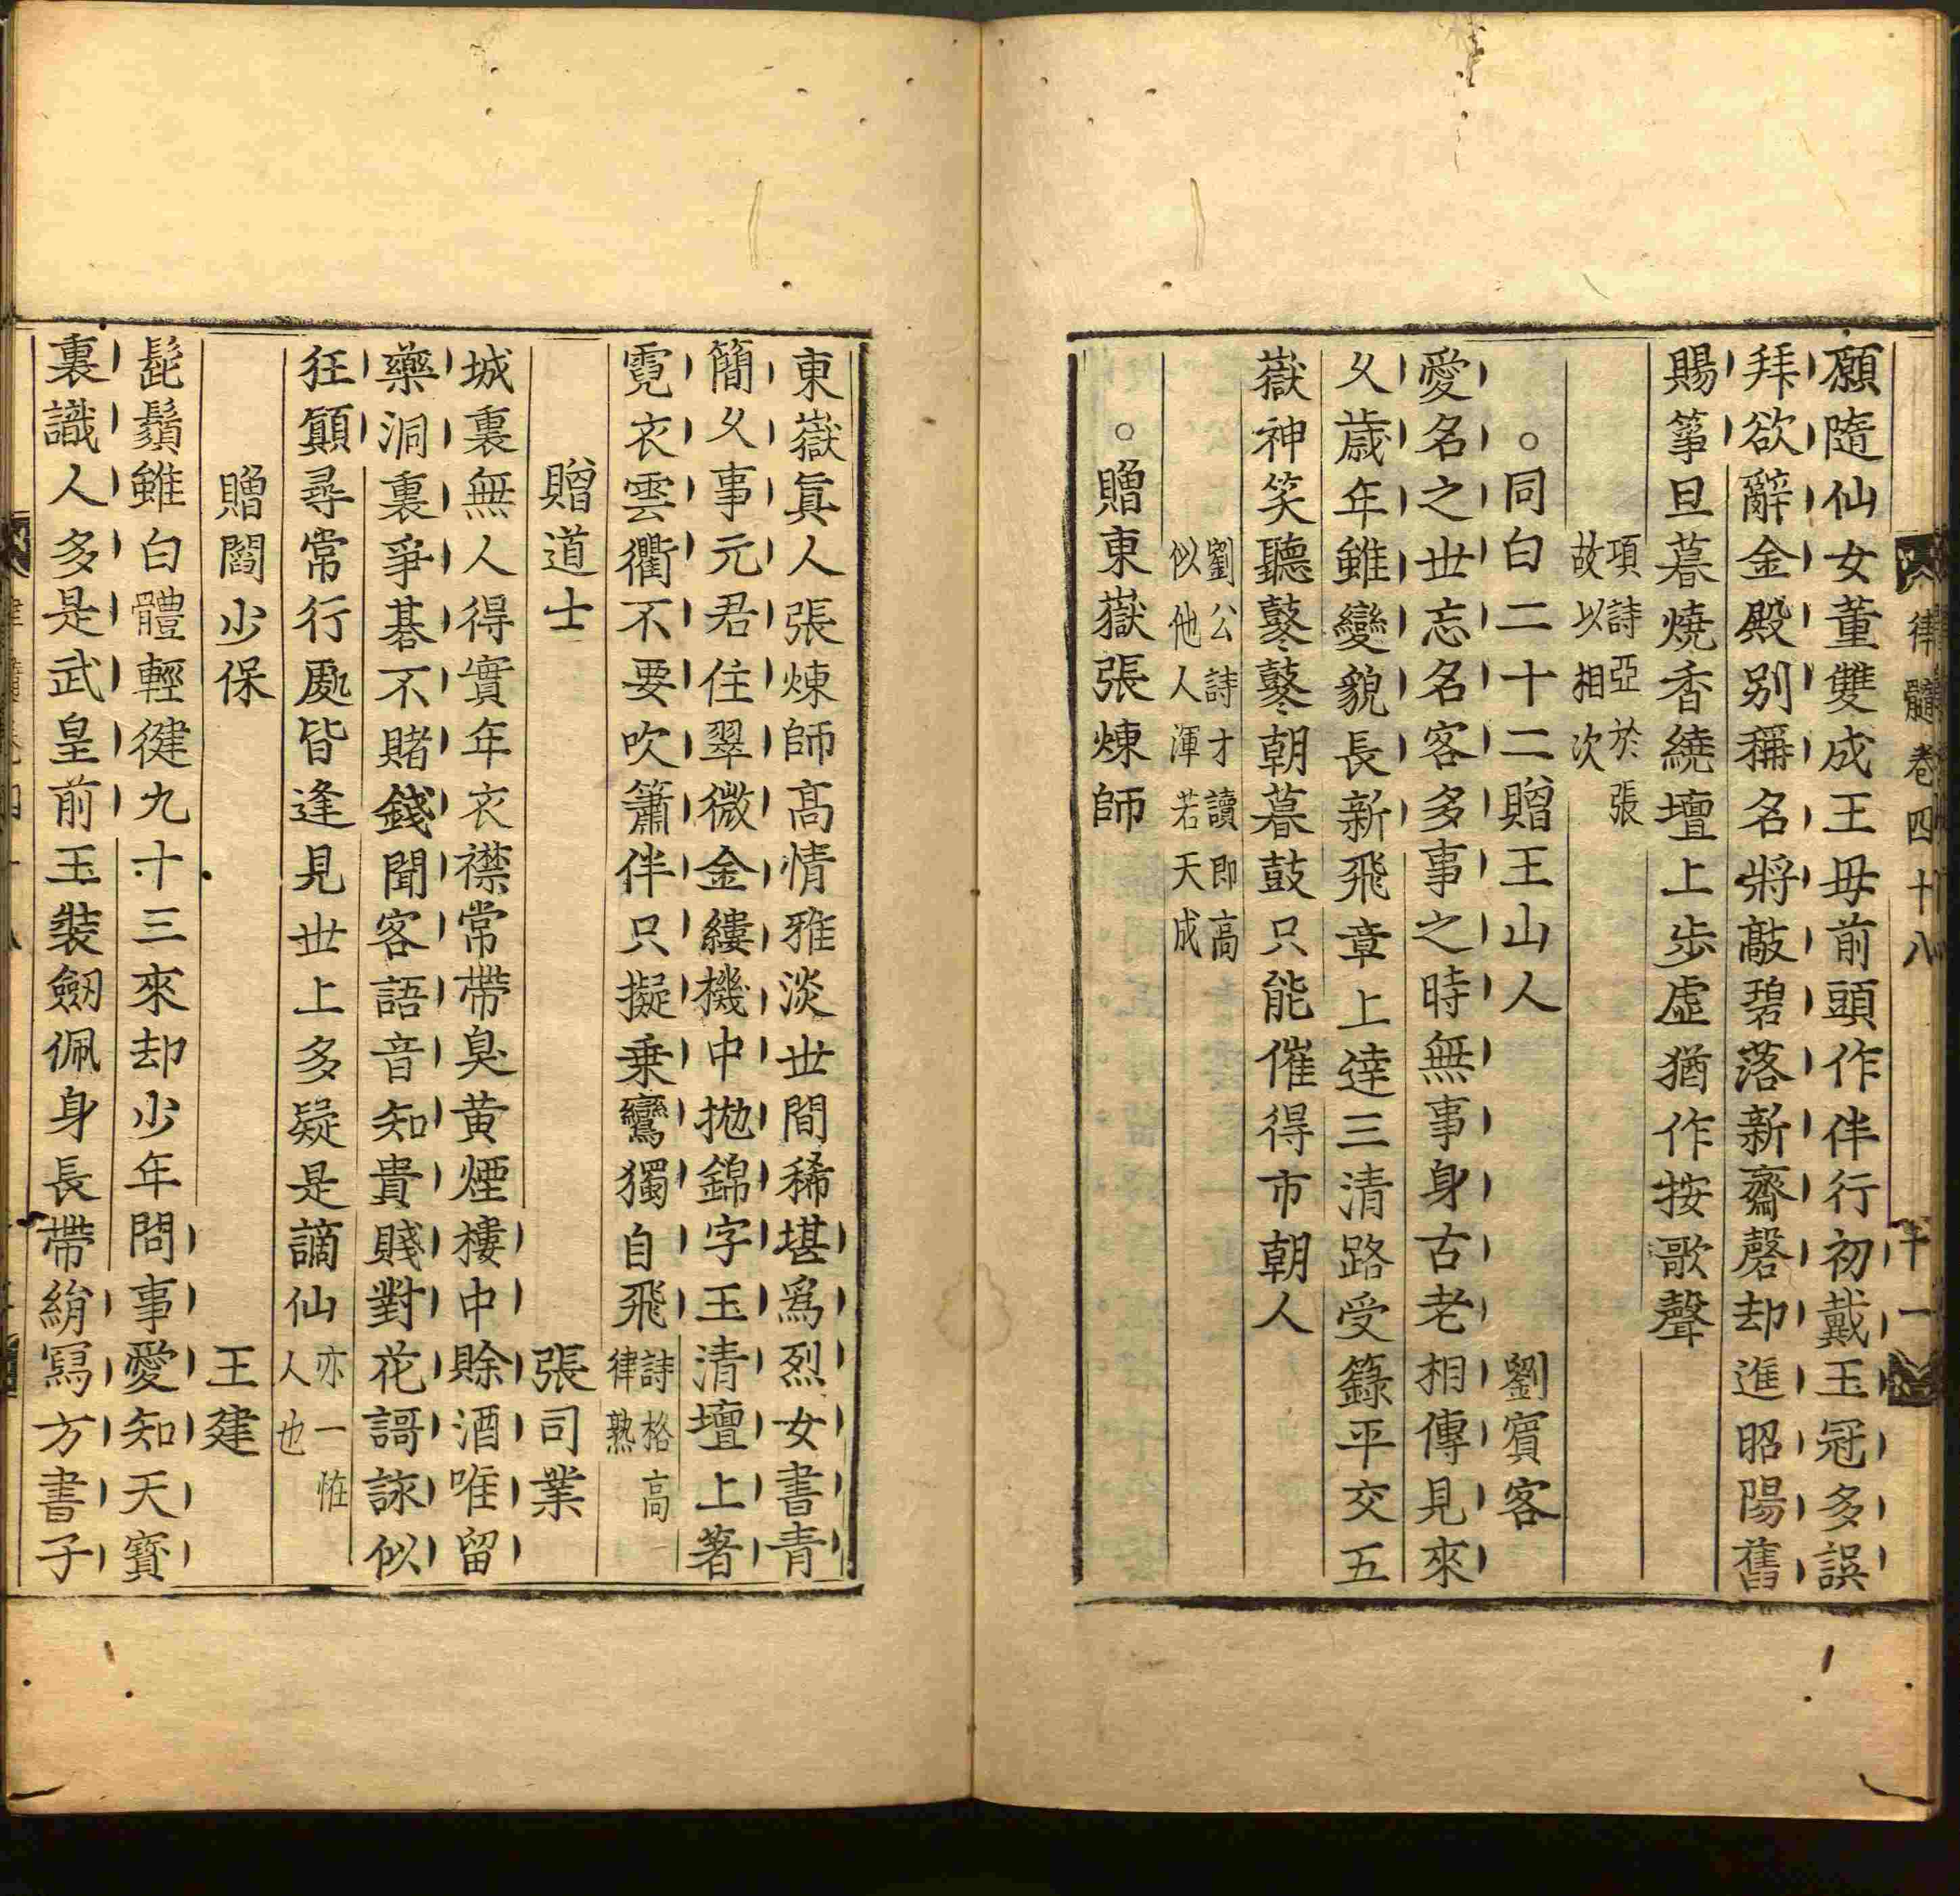 律髓卷四十八
十一
願隨仙女董雙成王毋前頭作伴行初戴玉冠多誤
拜欲辭金殿別稱名將敲碧落新齋磬却進昭陽舊
賜箏旦暮燒香繞壇上步虛猶作按歌聲
項詩亞於張
故以相次
○同白二十二贈王山人 劉賓客
愛名之世忘名客多事之時無事身古老相傳見來
久歲年雖變貌長新飛章上達三清路受籙平交五
嶽神笑聽鼕鼕朝暮鼓只能催得市朝人
劉公詩才讀即高
似他人渾若天成
○贈東嶽張煉師
東嶽真人張煉師高情雅淡世間稀堪為烈女書青
簡久事元君住翠微金縷機中拋錦字玉清壇上著
霓衣雲衢不要吹簫伴只擬乗鸞獨自飛
詩格高
律熟
贈道士 張司業
城裏無人得實年衣襟常帶臭黄煙樓中賒酒唯留
藥洞裏爭棊不賭錢聞客語音知貴賤對花謌詠似
狂顛尋常行處皆逢見世上多疑是謫仙
亦一恠
人也
贈閻少保 王建
髭鬚雖白體輕健九十三來却少年問事愛知天寶
裏識人多是武皇前玉裝劒佩身長帶絹寫方書子